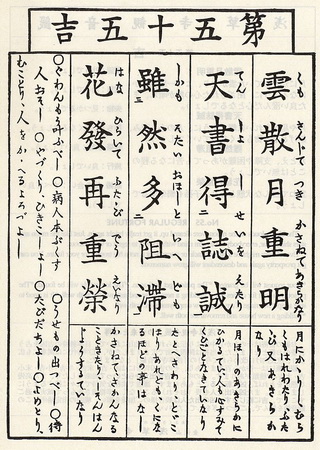 第五十五吉
雲散月重明
くも さんじて つき かさねてあきらかなり
月にかゝりし、むら
くもはれわたり、ふた
ゝび又あきらか
なり
天書得誌誠
てん しよ せいを えたり
月ほしのあきらかに
ひかるてい、人も心すみて
なきていなり
雖然多阻滞
しかも そたい おほし と いへ ども
たとへさわり、とゞこ
ほりあれども、くにな
るほどの事はなし
花發再重榮
はな ひらいて ふたゝび でう えいなり
かさねて、さかんなる
こときたりし
するていなり
〇ぐわんもう叶ふべし〇病人本ぷくす 〇うせもの出つべし〇待
人おそし 〇やづくりひきこしよし 〇たびだちよし〇よめとり、
むことり、人をかゝへるよろづよし